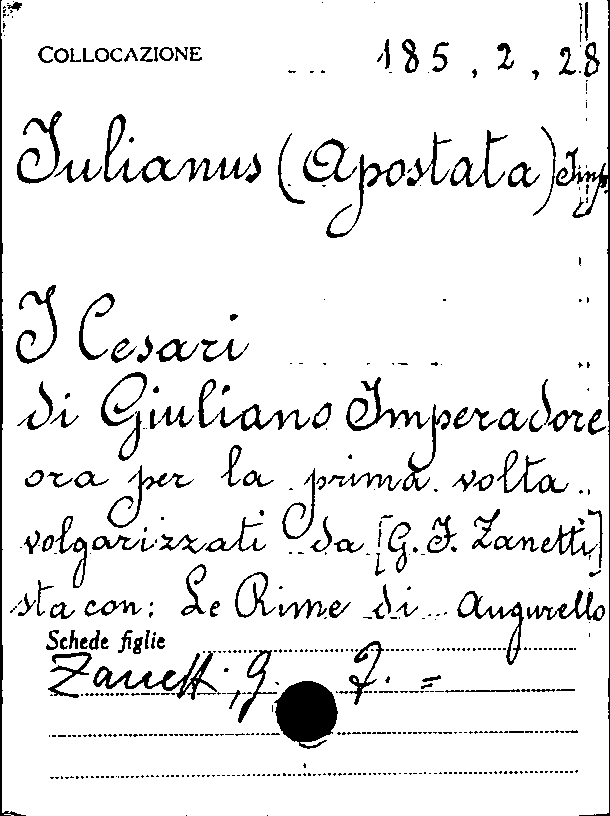 COLLOCAZIONE 185, 2, 28
Iulianus (Apostata) Imp.
I Cesari
di Giuliano Imperadore
ora per la prima volta
volgarizzati da [G. F. Zanetti]
sta con: Le Rime di Augurello
Schede figlie
Zanetti, G. F. =